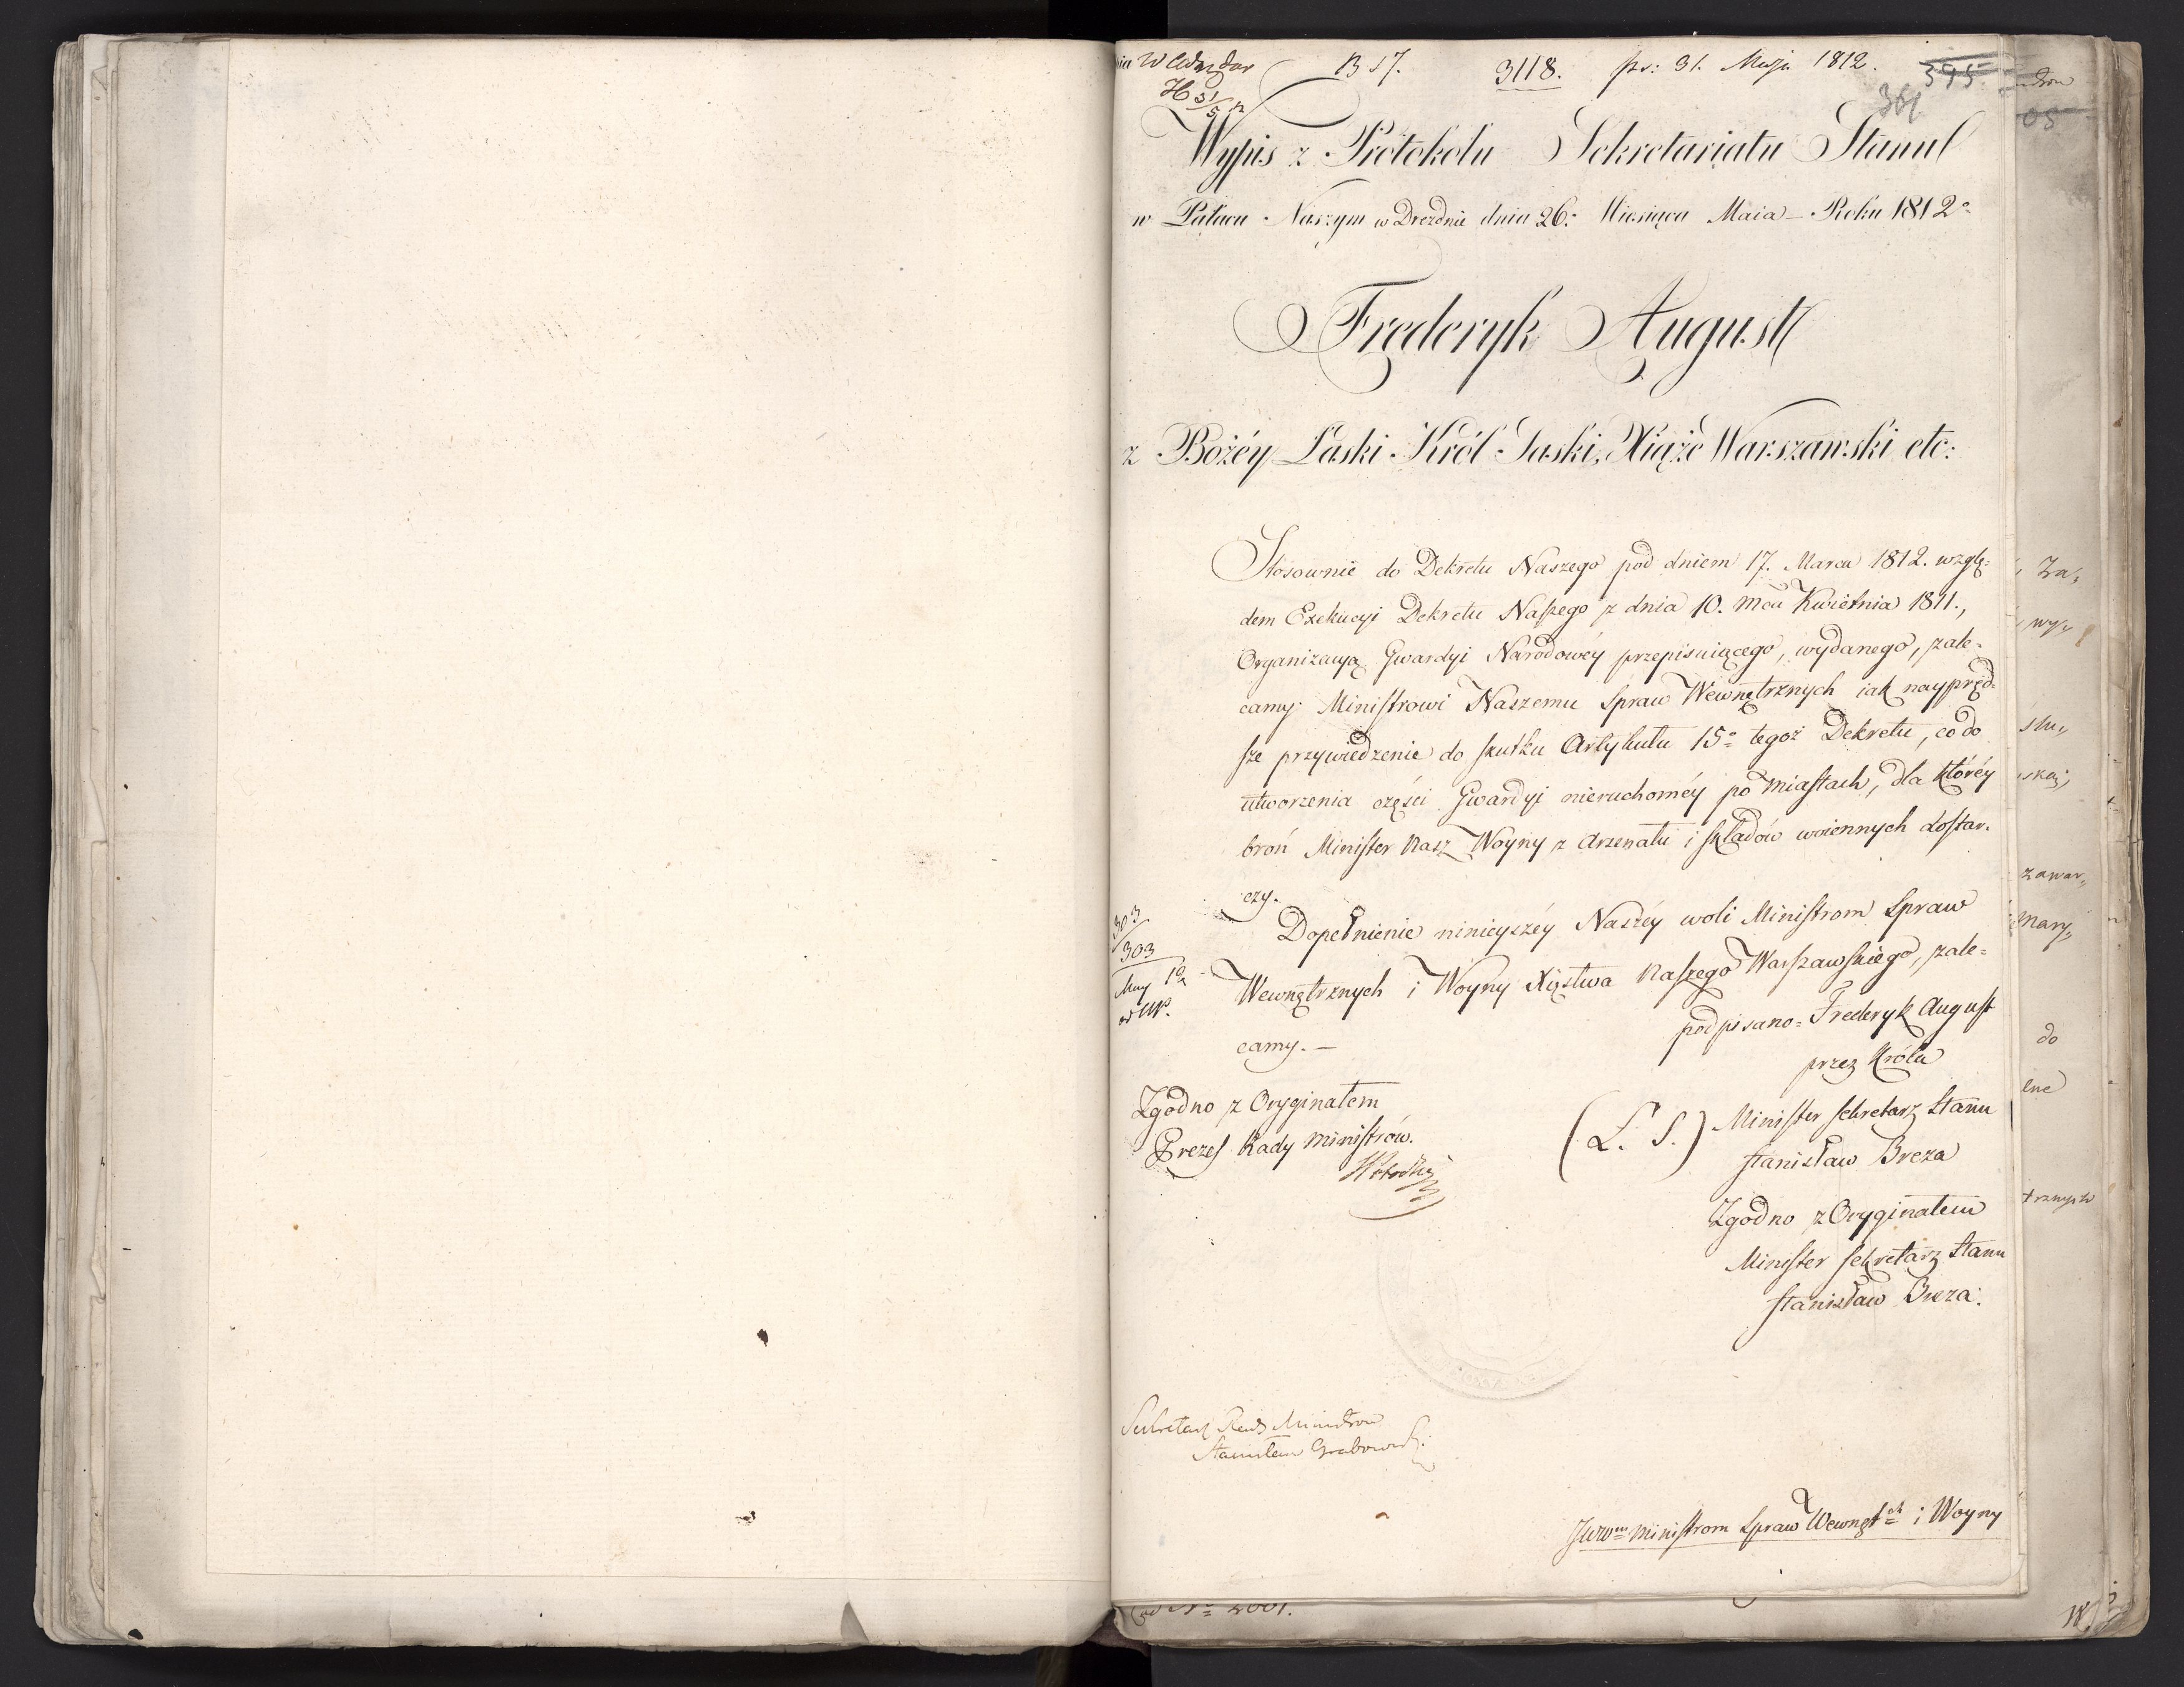 B 57. 3118. pr: 31. Maja 1812. 395
361
H 31/5 12
Wypis z Protokolu Sekretariatu Stanu
w Pałacu Naszym w Dreźnie dnia 26. Miesiąca Maia – Roku 1812
Frederyk August
z Bożéy Łaski Król Saski, Xiąże Warszawski etc:
Stosownie do Dekretu Naszego pod dniem 17. Marca 1812. wzglę=
dem Exekucyi Dekretu Naszego z dnia 10. Mca Kwietnia 1811.,
Organizacyą Gwardyi Narodowéy przepisuiącego, wydanego, zale=
camy Ministrowi Naszemu Spraw Wewnętrznych iak naypręd=
sze przywiedzenie do skutku Artykułu 15º tegoż Dekretu, co do
utworzenia części Gwardyi nieruchoméy po miastach, dla któréy
broń Minister Nasz Woyny z Arzenału i składów woiennych dostar.
czy.
Dopełnienie ninieyszéy Naszéy woli Ministrom Spraw
Wewnętrznych i Woyny Xięstwa Naszego Warszawskiego, zale=
camy. —
303
303
podpisano= Frederyk August
przez Króla
(L. S.) Minister Sekretarz Stanu
Stanisław Breza
Zgodno z Oryginałem
Prezes Rady Ministrów.
Zgodno z Oryginałem
Minister Sekretarz Stanu
Stanisław Breza.
Sekretarz Rady Ministrow
Stanisław Grabowski
JWWm Ministrom Spraw Wewnętch i Woyny